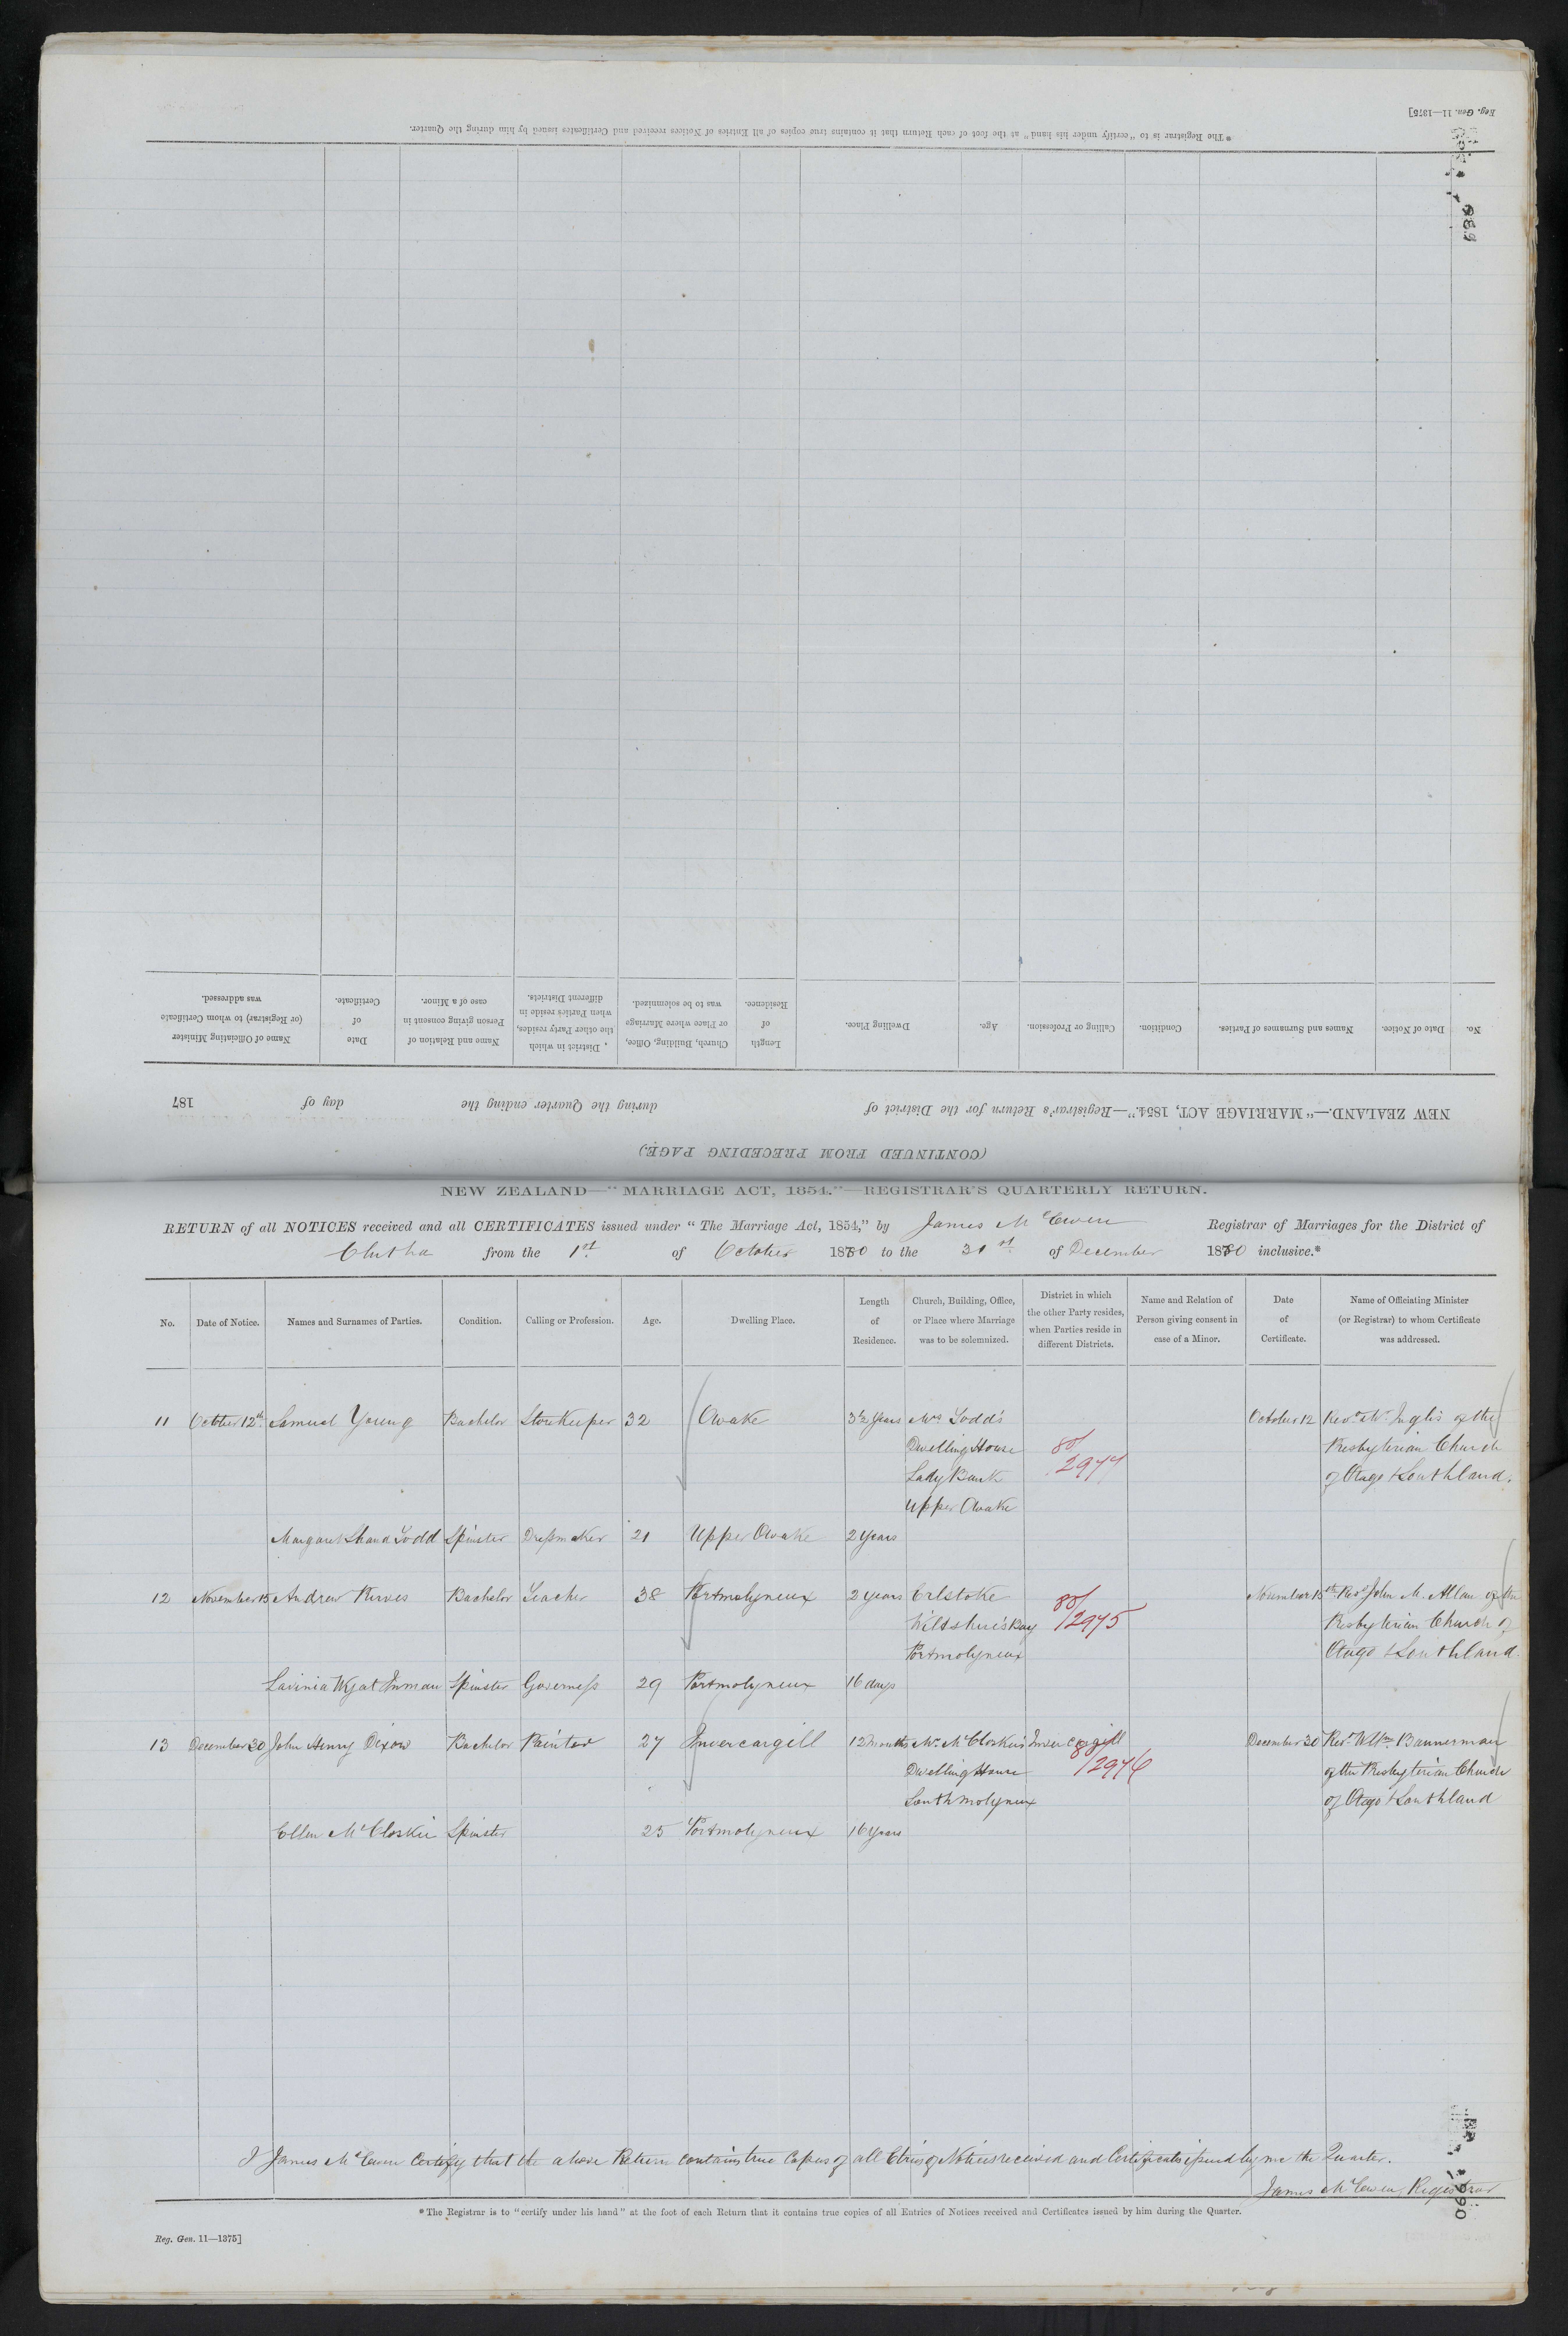 Reg. Gen. 11—1375]
*The Registrar is to "certify under his hand" at the foot of each Return that it contains true copies of all Entries of Notices received and Certificates issued by him during the Quarter.
989
(CONTINUED FROM PRECEDING PAGE.)
NEW ZEALAND.—"MARRIAGE ACT, 1854."—Registrar's Return for the District of during the Quarter ending the day of 187
No. Date of Notice. Names and Surnames of Parties. Condition. Calling or Profession. Age. Dwelling Place. Length of Residence. Church, Building, Office, or Place where Marriage was to be solemnized. District in which the other Party resides, when Parties reside in different Districts. Name and Relation of Person giving consent in case of a Minor. Date of Certificate. Name of Officiating Minister (or Registrar) to whom Certificate was addressed.
NEW ZEALAND—"MARRIAGE ACT, 1854."—REGISTRAR'S QUARTERLY RETURN.
RETURN of all NOTICES received and all CERTIFICATES issued under "The Marriage Act, 1854," by James McEwen Registrar of Marriages for the District of
Clutha from the 1st of October 1880 to the 31st of December 1880 inclusive.*
No. Date of Notice. Names and Surnames of Parties. Condition. Calling or Profession. Age. Dwelling Place. Length of Residence. Church, Building, Office, or Place where Marriage was to be solemnized. District in which the other Party resides, when Parties reside in different Districts. Name and Relation of Person giving consent in case of a Minor. Date of Certificate. Name of Officiating Minister (or Registrar) to whom Certificate was addressed.
11 October 12th Samuel Young Bachelor Storekeeper 32 Owake 3½ years Mrs Todd's October 12 Revd Mr Inglis of the
Dwelling House 80/ Presbyterian Church
Lady Bank 2974 of Otago & Southland.
Upper Owake
Margaret Shand Todd Spinster Dressmaker 21 Upper Owake 2 years
12 November 15 Andrew Purves Bachelor Teacher 38 Portmolyneux 2 years Erlstoke 80/ November 15th Revd John M. Allan of the
Wiltshire's Bay 2975 Presbyterian Church of
Portmolyneux Otago & Southland.
Lavinia Wyat Inman Spinster Governess 29 Portmolyneux 16 days
13 December 30 John Henry Dixon Bachelor Painter 27 Invercargill 12 months Mr McCloskie's Invercargill December 30 Revd Wm Bannerman
Dwelling House 80/2976 of the Presbyterian Church
South Molyneux of Otago & Southland
Ellen McCloskie Spinster 25 Portmolyneux 16 years
I James McEwen Certify that the above Return contains true Copies of all Etries of Notices received and Certificates issued by me the Quarter.
James McEwen, Registrar
*The Registrar is to "certify under his hand" at the foot of each Return that it contains true copies of all Entries of Notices received and Certificates issued by him during the Quarter.
Reg. Gen. 11—1375]
990